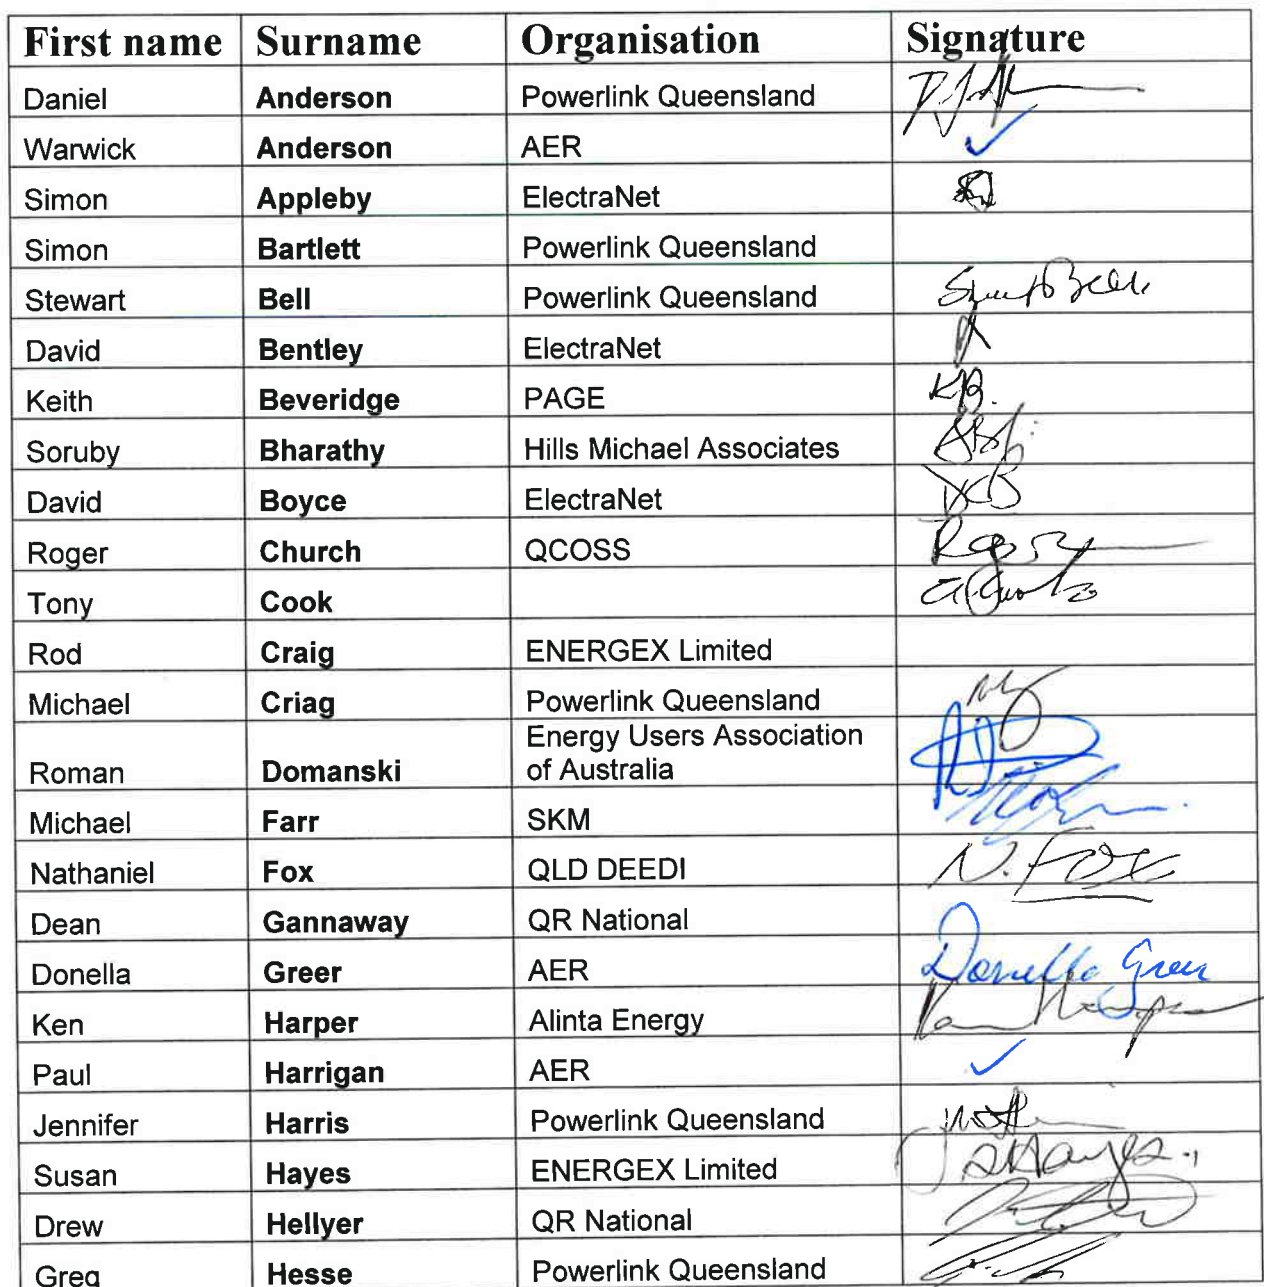 First name Surname Organisation Signature
Daniel Anderson Powerlink Queensland
Warwick Anderson AER ✓
Simon Appleby ElectraNet
Simon Bartlett Powerlink Queensland
Stewart Bell Powerlink Queensland
David Bentley ElectraNet
Keith Beveridge PAGE KB.
Soruby Bharathy Hills Michael Associates
David Boyce ElectraNet DCB
Roger Church QCOSS
Tony Cook
Rod Craig ENERGEX Limited
Michael Criag Powerlink Queensland
Roman Domanski Energy Users Association
of Australia
Michael Farr SKM
Nathaniel Fox QLD DEEDI N. Fox
Dean Gannaway QR National
Donella Greer AER Donella Greer
Ken Harper Alinta Energy
Paul Harrigan AER ✓
Jennifer Harris Powerlink Queensland
Susan Hayes ENERGEX Limited S Hayes.
Drew Hellyer QR National
Greg Hesse Powerlink Queensland